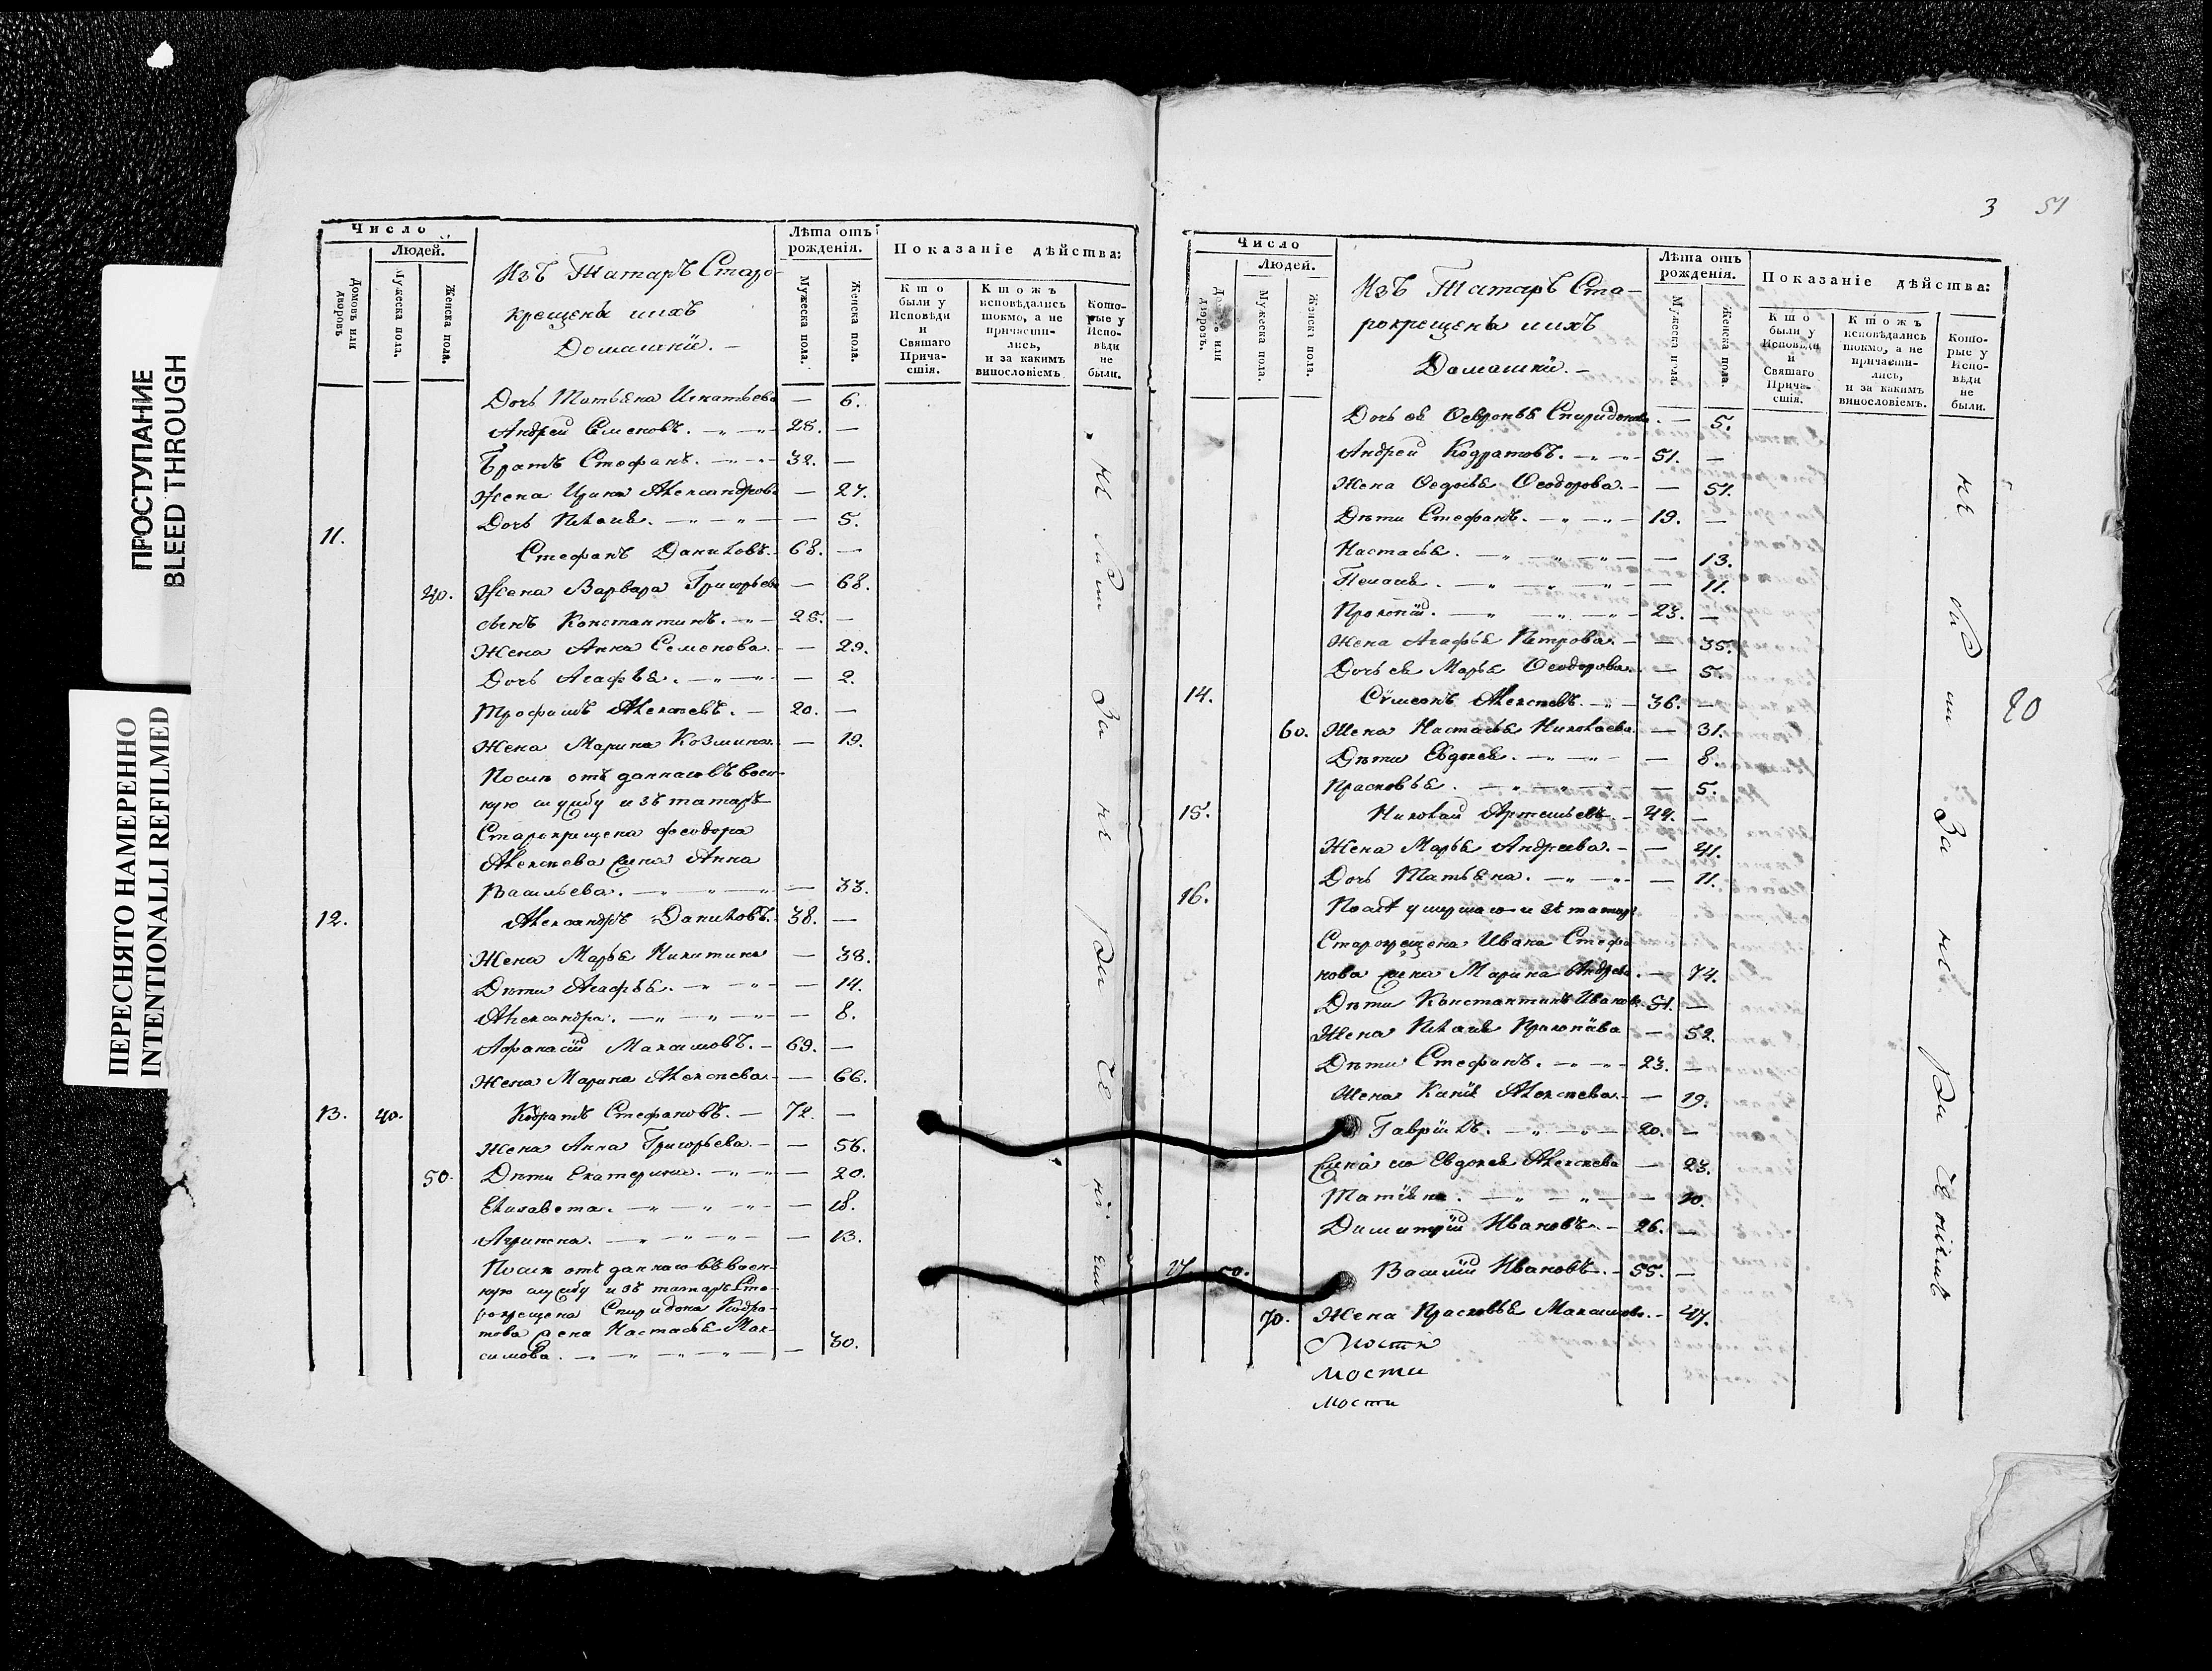 ПРОСТУПАНИЕ
BLEED THROUGH
ПЕРЕСНЯТО НАМЕРЕННО
INTENTIONALLI REFILMED
Число
Людей.
Домовъ или дворовъ
Мужеска пола.
Женска пола.
Изъ Татаръ Старо-
крещены ихъ
Домашнїи. –
Лѣта отъ рождения.
Мужеска пола.
Женска пола.
Показаніе дѣйства:
Кто были у Исповѣди и Святаго Прича-стія.
Ктожъ исповѣдались токмо, а не причасти-лись, и за какимъ винословіемъ
Кото-рые у Испо-вѣди не были.
Дочь Татьяна Игнатьева — 6.
Андрей Семеновъ. 28. —
Братъ Стефанъ. 32. —
Жена Ирина Александрова — 27.
Дочь Пелагея. — 5.
11. Стефанъ Даниловъ. 68. —
40. Жена Варвара Григорьева — 68.
сынъ Константинъ. 28. —
Жена Анна Семенова. — 29.
Дочь Агафья. — 2.
Трофимъ Алексеевъ. 20. —
Жена Марина Козмина. — 19.
После отъ даннаго въ воен-
ную службу изъ татаръ
Старокрещена Феодора
Алексеева жена Анна
Васильева. — 33.
12. Александръ Даниловъ. 38. —
Жена Марья Никитина — 38.
Дѣти Агафья. — 14.
Александра. — 8.
Афанасїй Максимовъ. 69. —
Жена Марина Алексеева. — 66.
13. 40. Кодратъ Стефановъ. 72. —
Жена Анна Григорьева. — 56.
50. Дѣти Екатерина. — 20.
Елизавета. — 18.
Агрипена. — 13.
После отъ даннаго въ воен-
ную службу изъ татаръ Ста-
рокрещена Спиридона Кодра-
това жена Настасья Мак-
симова. — 30.
3 51
Число
Людей.
Домовъ или дворовъ.
Мужеска пола.
Женска пола.
Изъ Татаръ Ста-
рокрещены ихъ
Домашнїи. –
Лѣта отъ рожденія.
Мужеска пола.
Женска пола.
Показаніе дѣйства:
Кто были у Исповѣди и Святаго Прича-стія.
Ктожъ исповѣдались токмо, а не причасти-лись, и за какимъ винословіемъ.
Кото-рые у Испо-вѣди не были.
Дочь ея Февронья Спиридонова. — 5.
Андрей Кодратовъ. 51. —
Жена Федосья Феодорова. — 51.
Дѣти Стефанъ. 19. —
Настасья. — 13.
Пелагея. — 11.
Прокопїй. 23. —
Жена Агафья Петрова. — 35.
Дочь ея Марья Феодорова. — 5.
14. Сѵмеонъ Алексеевъ. 36. —
60. Жена Настасья Николаева. — 31.
Дѣти Евдокея. — 8.
Прасковья. — 5.
15. Николай Артемьевъ. 42. —
Жена Марья Андреева. — 41.
Дочь Татьяна. — 11.
16. После умершаго изъ татаръ
Старокрещена Ивана Стефа-
нова жена Марина Андреева. — 74.
Дѣти Константинъ Ивановъ. 51. —
Жена Пелагея Прокопїева — 52.
Дѣти Стефанъ. 23. —
Жена Алексеева. — 19.
Гаврїилъ. 20. —
Жена его Евдокея Алексеева — 23.
Татїяна. — 10.
Димитрїй Ивановъ. 26. —
17. 50. Василїй Ивановъ. 55. —
70. Жена Прасковья Максимова. — 47.
мости
мости
20